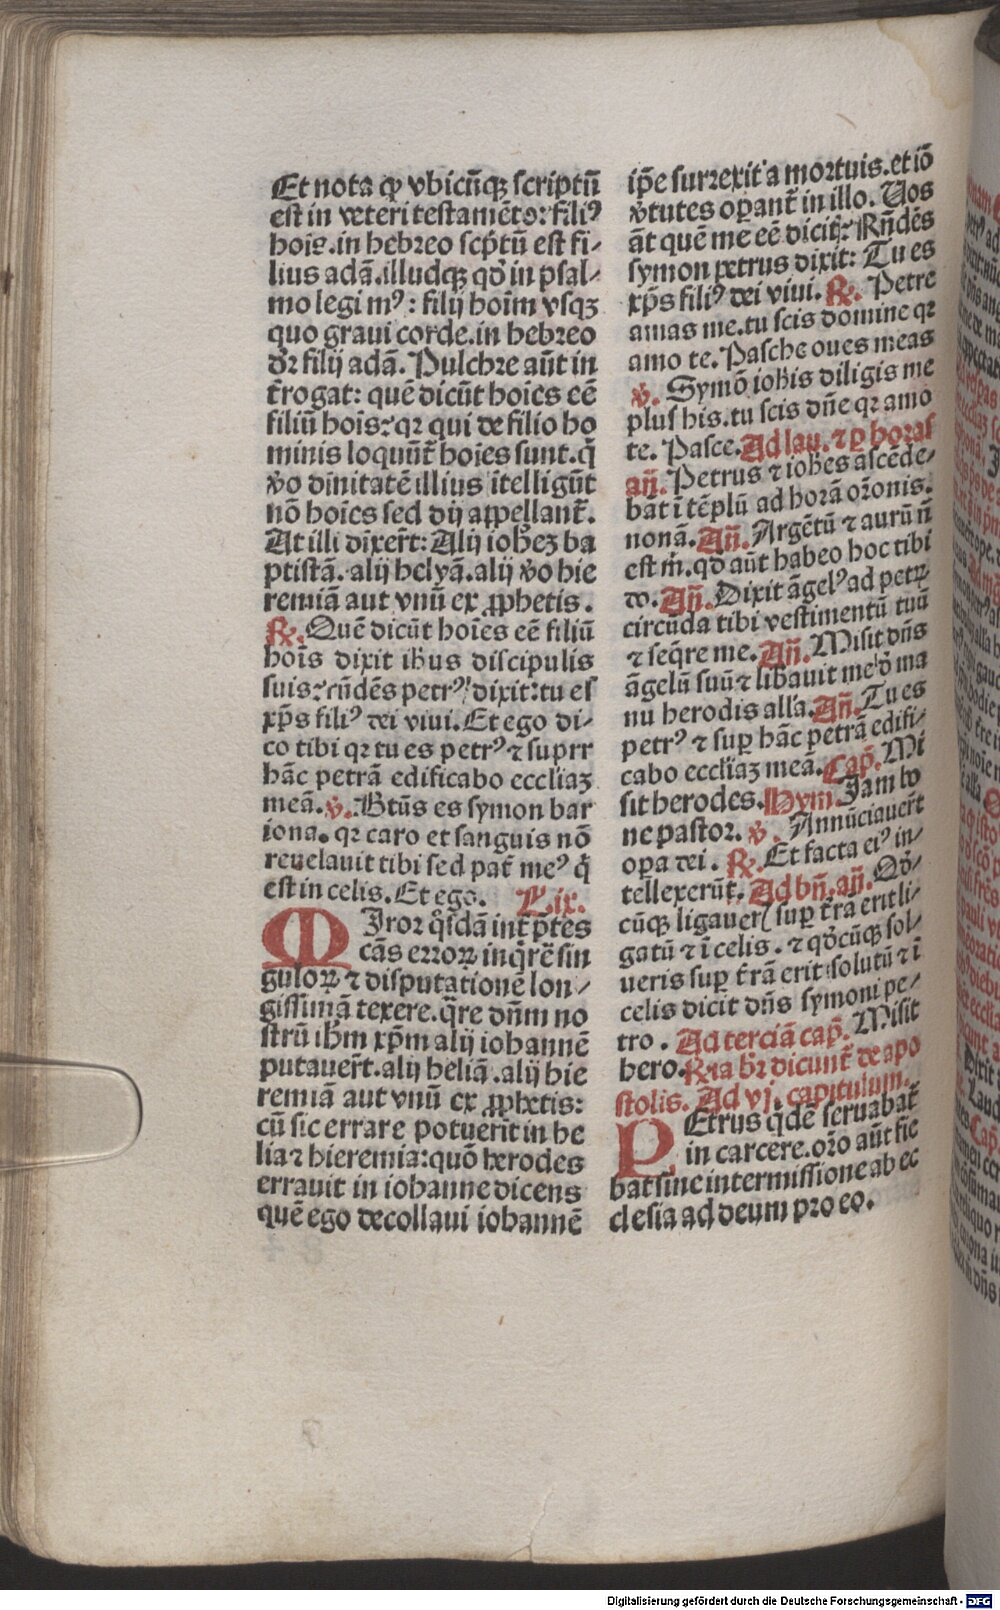 Et nota qꝙ vbicūqꝫ scriptū
est in veteri testamēto: filiꝰ
hoīs. in hebreo scptū est fi-
lius adā. illudqꝫ qd̓ in psal-
mo legimꝰ: filij hoīm vsqꝫ
quo graui corde. in hebreo
dr̄ filij adā. Pulchre aūt in
t̄rogat: quē dicūt hoīes eē
filiū hoīs: qꝛ qui de filio ho
minis loquūt̄ hoīes sunt. q̄
v̓o diuinitatē illius ītelligūt
nō hoīes sed dij appellant̄.
At illi dixer̄t: Alij ioh̄eꝫ ba
ptistā. alij helyā. alij v̓o hie
remiā aut vnū ex ꝓphetis.
℟. Quē dicūt hoīes eē filiū
hoīs dixit ih̄us discipulis
suis: rn̄dēs petrꝰ dixit: tu es
xp̄s filiꝰ dei viui. Et ego di-
co tibi qꝛ tu es petrꝰ ⁊ suprr
hāc petrā edificabo eccliaꝫ
meā. ℣. Btūs es symon bar
iona. qꝛ caro et sanguis nō
reuelauit tibi sed pat̄ meꝰ q̄
est in celis. Et ego. L. ix.
Miror q̓sdā int̄p̄tes
cās erroꝝ inq̄rē̄ sin
guloꝝ ⁊ disputationē lon-
gissimā texere. q̄re dn̄m no
strū ih̄m xp̄m alij iohannē
putauer̄t. alij heliā. alij hie
remiā aut vnū ex ꝓphetis:
cū sic errare potuerīt in he
lia ⁊ hieremia: quō herodes
errauit in iohanne dicens
quē ego decollaui iohannē
ip̄e surrexit a mortuis. et iō
v̓tutes oꝑant̄ in illo. Uos
āt quē me eē dicitꝭ: Rn̄dēs
symon petrus dixit: Tu es
xp̄s filiꝰ dei viui. ℟. Petre
amas me. tu scis domine qꝛ
amo te. Pasche oues meas
℣. Symō ioh̄is diligis me
plus his. tu scis dn̄e qꝛ amo
te. Pasce. Ad lau. ⁊ ꝑ horas
an̄. Petrus ⁊ ioh̄es ascēde-
bāt ī tēplū ad horā or̄onis.
nonā. An̄. Argētū ⁊ aurū n̄
est m̓. qd̓ aūt habeo hoc tibi
do. An̄. Dixit āgelꝰ ad petꝝ
circūda tibi vestimentū tuū
⁊ seq̄re me. An̄. Misit dn̄s
āgelū suū ⁊ libauit me d̓ ma
nu herodis all̓a. An̄. Tu es
petrꝰ ⁊ suꝑ hāc petrā edifi-
cabo eccliaꝫ meā. Cap̄. Mi
sit herodes. Hym. Iam bo
ne pastor. ℣. Annūciauer̄t
oꝑa dei. ℟. Et facta eiꝰ in-
tellexerūt. Ad bn̄. an̄. Qd̓-
cūqꝫ ligauerꝭ suꝑ t̄rā erit li-
gatū ⁊ ī celis. ⁊ qd̓cūqꝫ sol-
ueris suꝑ t̄rā erit solutū ⁊ ī
celis dicit dn̄s symoni pe-
tro. Ad terciā cap̄. Misit
hero. ℟ia br̄ dicunt̄ de apo
stolis. Ad vj. capitulum.
Petrus q̓dē seruabat̄
in carcere. or̄o aūt fie
bat sine intermissione ab ec
clesia ad deum pro eo.
Digitalisierung gefördert durch die Deutsche Forschungsgemeinschaft - DFG